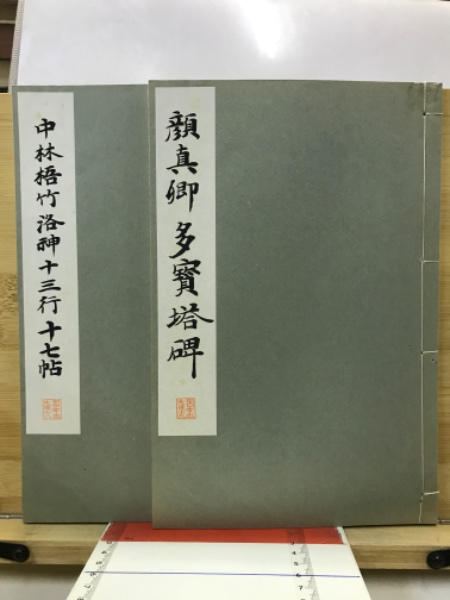 顔真卿 多寳塔碑
中林梧竹 洛神十三行 十七帖